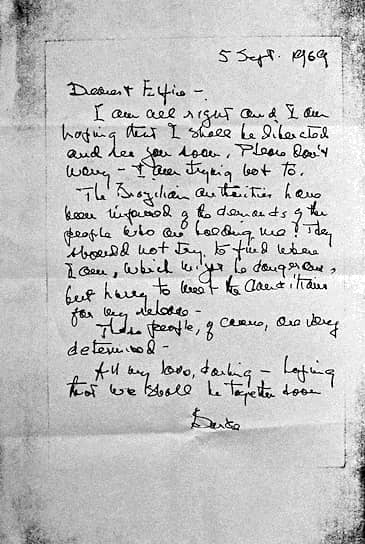 5 Sept. 1969
Dearest Elfie -
I am all right and I am
hoping that I shall be liberated
and see you soon. Please don't
worry - I am trying not to.
The Brazilian authorities have
been informed of the demands of the
people who are holding me. They
should not try to find where
I am, which might be dangerous,
but hurry to meet the conditions
for my release -
These people, of course, are very
determined -
All my love, darling - hoping
that we shall be together soon
Burke